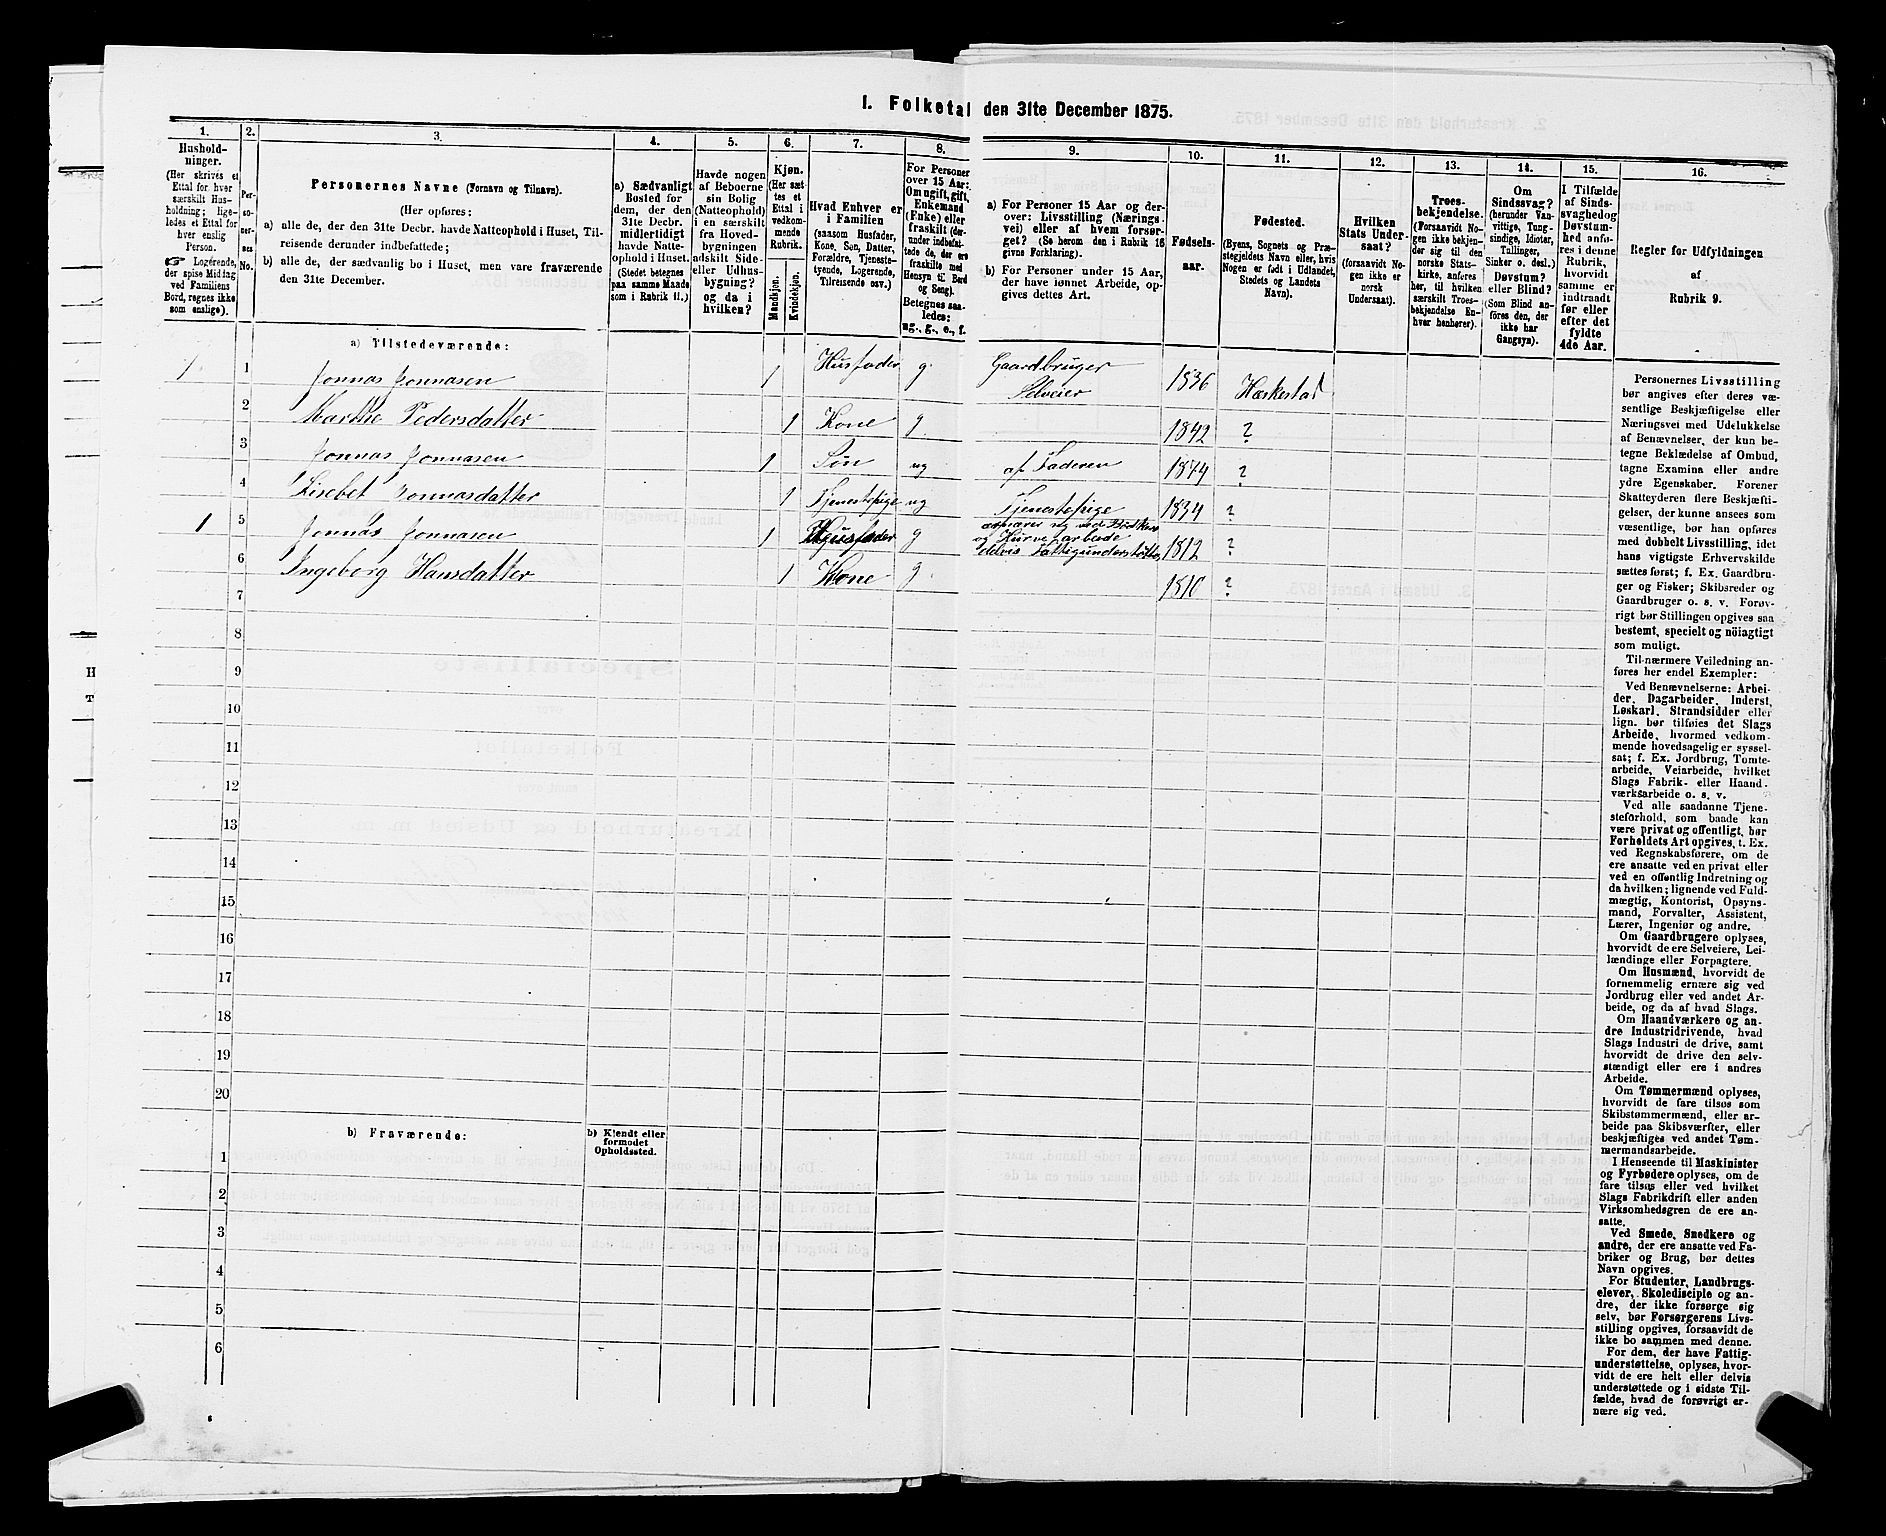 I. Folketal den 31te December 1875.
1. 2. 3. 4. 5. 6. 7. 8. 9. 10. 11. 12. 13. 14. 15. 16.
Hushold-
ninger.
(Her skrives et
Ettal for hver
særskilt Hus-
holdning; lige-
ledes et Ettal for
hver enslig
Person.
☞ Logerende,
der spise Middag
ved Familiens
Bord, regnes ikke
som enslige).
Per-
so-
ner-
nes
No.
Personernes Navne (Fornavn og Tilnavn).
(Her opføres:
a) alle de, der den 31te Decbr. havde Natteophold i Huset, Til-
reisende derunder indbefattede;
b) alle de, der sædvanlig bo i Huset, men vare fraværende
den 31te December.
a) Sædvanligt
Bosted for
dem, der den
31te Decbr.
midlertidigt
havde Natte-
ophold i Huset.
(Stedet betegnes
paa samme Maade
som i Rubrik 11.)
Havde nogen
af Beboerne
sin Bolig
(Natteophold)
i en særskilt
fra Hoved-
bygningen
adskilt Side-
eller Udhus-
bygning?
og da i
hvilken?
Kjøn.
(Her sæt-
tes et
Ettal i
vedkom-
mende
Rubrik.
Mandkjøn.
Kvindekjøn.
Hvad Enhver er
i Familien
(saasom Husfader,
Kone, Søn, Datter,
Forældre, Tjeneste-
tyende, Logerende,
Tilreisende osv.)
For Personer
over 15 Aar:
Om ugift, gift,
Enkemand
(Enke) eller
fraskilt (der-
under indbefat-
tede de, der ere
fraskilte med
Hensyn til Bord
og Seng).
Betegnes saa-
ledes:
ug., g., e., f.
a) For Personer 15 Aar og der-
over: Livsstilling (Nærings-
vei) eller af hvem forsør-
get? (Se herom den i Rubrik 16
givne Forklaring).
b) For Personer under 15 Aar,
der have lønnet Arbeide, op-
gives dettes Art.
Fødsels-
aar.
Fødested.
(Byens, Sognets og Præ-
stegjeldets Navn eller, hvis
Nogen er født i Udlandet,
Stedets og Landets
Navn).
Hvilken
Stats Under-
saat?
(forsaavidt No-
gen ikke er
norsk
Undersaat).
Troes-
bekjendelse.
(Forsaavidt No-
gen ikke bekjen-
der sig til den
norske Stats-
kirke, anføres
her, til hvilken
særskilt Troes-
bekjendelse En-
hver henhører).
Om
Sindssvag?
(herunder Van-
vittige, Tung-
sindige, Idioter,
Tullinger,
Sinker o. desl.)
Døvstum?
eller Blind?
(Som Blind an-
føres den, der
ikke har
Gangsyn).
I Tilfælde
af Sinds-
svaghedog
Døvstum-
hed anfø-
res i denne
Rubrik,
hvorvidt
samme er
indtraadt
før eller
efter det
fyldte
4de Aar.
Regler for Udfyldningen
af
Rubrik 9.
a) Tilstedeværende:
1 1 Jonnas Jonnasen 1 Husfader g. Gaardbruger Selveier 1836 Hæskestad
2 Marthe Pedersdatter 1 Kone g. 1842 ?
3 Jonnas Jonnasen 1 Søn ug af Faderen 1874 ?
4 Lisebet Jonnasdatter 1 Tjenestepige ug Tjenestepige 1834 ?
1 5 Jonnas Jonnasen 1 Husfader g og Kurvearbeide delvis Fattigunderstøttes 1812 ?
6 Ingeborg Hansdatter 1 Kone g. 1810 ?
7
8
9
10
11
12
13
14
15
16
17
18
19
20
b) Fraværende:
b) Kjendt eller
formodet
Opholdssted.
1
2
3
4
5
6
Personernes Livsstilling
bør angives efter deres væ-
sentlige Beskjæftigelse eller
Næringsvei med Udelukkelse
af Benævnelser, der kun be-
tegne Beklædelse af Ombud,
tagne Examina eller andre
ydre Egenskaber. Forener
Skatteyderen flere Beskjæfti-
gelser, der kunne ansees som
væsentlige, bør han opføres
med dobbelt Livsstilling, idet
hans vigtigste Erhvervskilde
sættes først; f. Ex. Gaardbru-
ger og Fisker; Skibsreder og
Gaardbruger o. s. v. Forøv-
rigt bør Stillingen opgives saa
bestemt, specielt og nöiagtigt
som muligt.
Til nærmere Veiledning an-
føres her endel Exempler:
Ved Benævnelserne: Arbei-
der, Dagarbeider, Inderst,
Løskarl, Strandsidder eller
lign. bør tilføies det Slags
Arbeide, hvormed vedkom-
mende hovedsagelig er syssel-
sat; f. Ex. Jordbrug, Tomte-
arbeide, Veiarbeide, hvilket
Slags Fabrik- eller Haand
værksarbeide o. s. v.
Ved alle saadanne Tjene-
steforhold, som baade kan
være privat og offentligt, bør
Forholdets Art opgives, t. Ex.
ved Regnskabsførere, om de
ere ansatte ved en privat eller
ved en offentlig Indretning og
da hvilken; lignende ved Fuld-
mægtig, Kontorist, Opsyns-
mand, Forvalter, Assistent,
Lærer, Ingeniør og andre.
Om Gaardbrugere oplyses,
hvorvidt de ere Selveiere, Lei-
lændinge eller Forpagtere.
Om Husmænd, hvorvidt de
fornemmelig ernære sig ved
Jordbrug eller ved andet Ar-
beide, og da af hvad Slags.
Om Haandværkere og an-
dre Industridrivende, hvad
Slags Industri de drive, samt
hvorvidt de drive den selv-
stændigt eller ere i andres
Arbeide.
Om Tømmermænd oplyses,
hvorvidt de fare tilsøs som
Skibstømmermænd, eller ar-
beide paa Skibsværfter, eller
beskjæftiges ved andet Tøm-
mermandsarbeide.
I Henseende til Maskinister
og Fyrbødere oplyses, om de
fare tilsøs eller ved hvilket
Slags Fabrikdrift eller anden
Virksomhedsgren de ere an-
satte.
Ved Smede, Snedkere og
andre, der ere ansatte ved Fa-
briker og Brug, bør dettes
Navn opgives.
For Studenter, Landbrugs-
elever, Skoledisciple og an-
dre, der ikke forsørge sig
selv, bør Forsørgerens Livs-
stilling opgives, forsaavidt de
ikke bo sammen med denne.
For dem, der have Fattig-
understøttelse, oplyses, hvor-
vidt de ere helt eller delvis
understøttede og i sidste Til-
fælde, hvad de forøvrigt er-
nære sig ved.